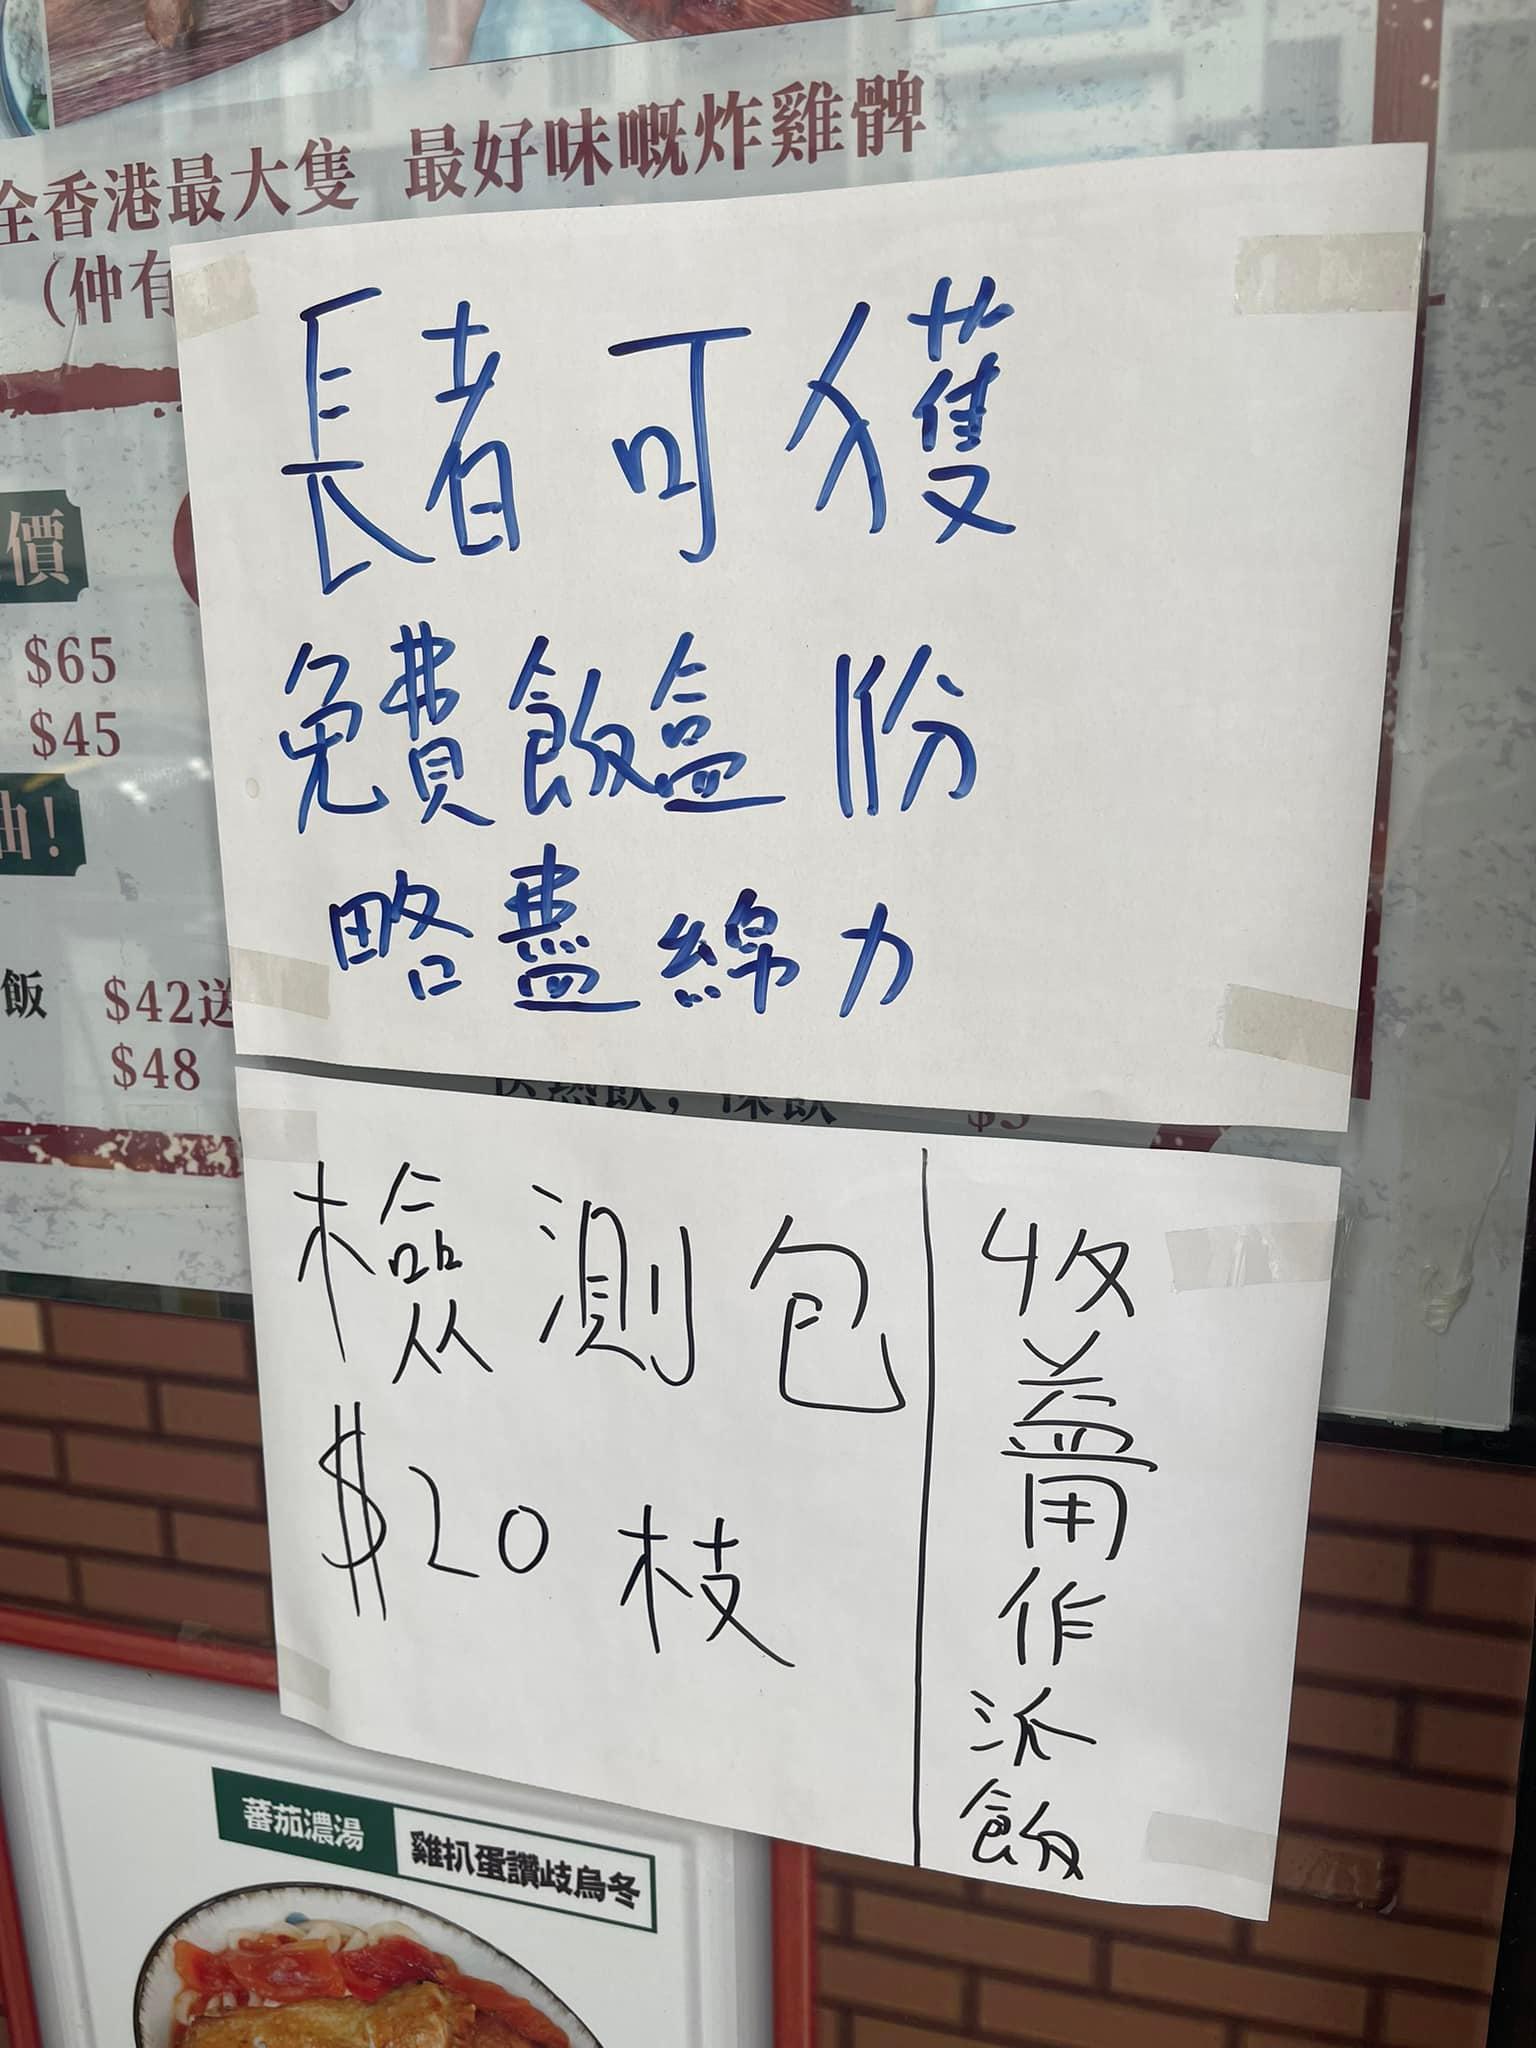 全香港最大隻 最好味嘅炸雞髀
(仲有
價
$65
$45
油!
飯 $42送
$48
$5
長者可獲
免費飯盒1份
略盡綿力
檢測包
$20 枝
收益用作派飯
蕃茄濃湯 雞扒蛋讚岐烏冬